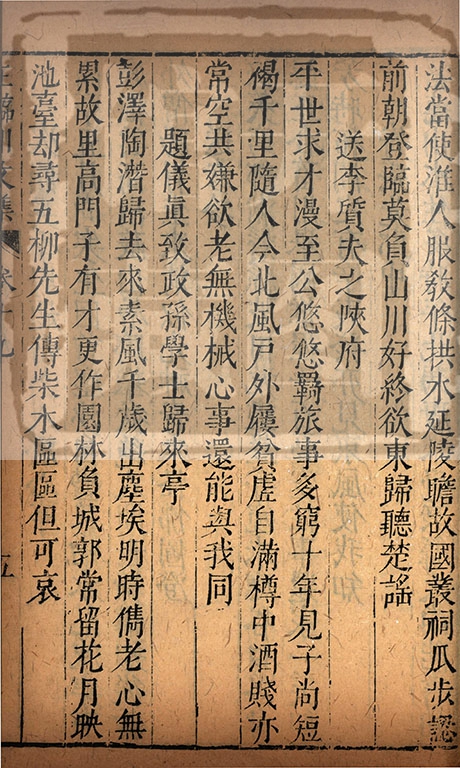 法當使淮人服敎條拱水延陵瞻故國叢祠瓜步認
前朝登臨莫負山川好終欲東歸聽楚謠
送李質夫之陝府
平世求才漫至公悠悠羇旅事多窮十年見子尚短
褐千里隨人今北風戶外屨貧虛自滿樽中酒賤亦
常空共嫌欲老無機械心事還能與我同
題儀眞致政孫學士歸來亭
彭澤陶潛歸去來素風千歲出塵埃明時儁老心無
累故里高門子有才更作園林負城郭常留花月映
池臺却尋五柳先生傳柴水區區但可哀
王臨川文集 卷十九 五